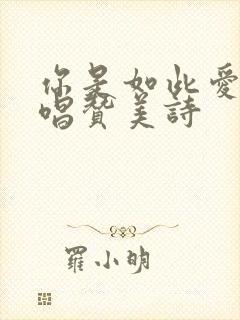 你是如此愛
唱贊美詩
羅小明